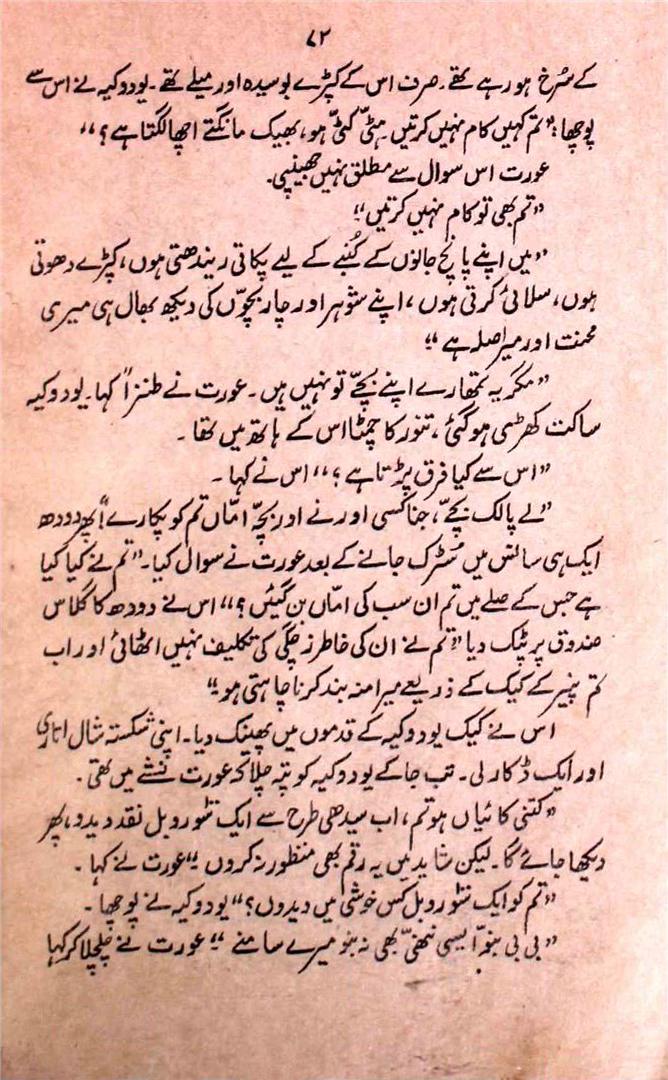 ۸۲
کے سُرخ ہو رہے تھے۔ صرف اس کے کپڑے بوسیدہ اور میلے تھے۔ یودوکیہ نے اس سے
پوچھا: ”تم کہیں کام نہیں کرتیں۔ ہٹّی کٹّی ہو، بھیک مانگتے اچھا لگتا ہے؟“
عورت اس سوال سے مطلق نہیں جھینپی۔
”تم بھی تو کام نہیں کرتیں“؛
”میں اپنے پانچ جانوں کے کُنبے کے لیے پکاتی ریندھتی ہوں، کپڑے دھوتی
ہوں، سلائی کرتی ہوں، اپنے شوہر اور چار بچوّں کی دیکھ بھال ہی میری
محنت اور میرا صلہ ہے“؛
”مگر یہ تمھارے اپنے بچّے تو نہیں ہیں۔ عورت نے طنزاً کہا۔ یودوکیہ
ساکت کھڑی ہو گئی، تنور کا چمٹا اس کے ہاتھ میں تھا۔
”اس سے کیا فرق پڑتا ہے؟“ اس نے کہا۔
”لے پالک بچّے، جنا کسی اور نے اور بچہّ امّاں تم کو پکارے“! پھر دودھ
ایک ہی سانس میں سُڑک جانے کے بعد عورت نے سوال کیا۔ ”تم نے کیا کیا
ہے جس کے صلے میں تم ان سب کی امّاں بن گئیں؟“ اس نے دودھ کا گلاس
صندوق پر ٹپک دیا ”تم نے ان کی خاطر زچگی کی تکلیف نہیں اٹھائی اور اب
تم پنیر کے کیک کے ذریعے میرا منہ بند کرنا چاہتی ہو“؛
اس نے کیک یودوکیہ کے قدموں میں پھینک دیا۔ اپنی شکستہ شال اتاری
اور ایک ڈکار لی۔ تب جا کے یودوکیہ کو پتہ چلا کہ عورت نشے میں تھی۔
”کتنی کائیاں ہو تم، اب سیدھی طرح سے ایک سَو روبل نقد دیدو، پھر
دیکھا جائے گا۔ لیکن شاید میں یہ رقم بھی منظور نہ کروں“ عورت نے کہا۔
”تم کو ایک سَو روبل کس خوشی میں دیدوں؟“ یودوکیہ نے پوچھا۔
”بی بی بنّو! ایسی ننھی بھی نہ بنو میرے سامنے“ عورت نے چلچلا کر کہا